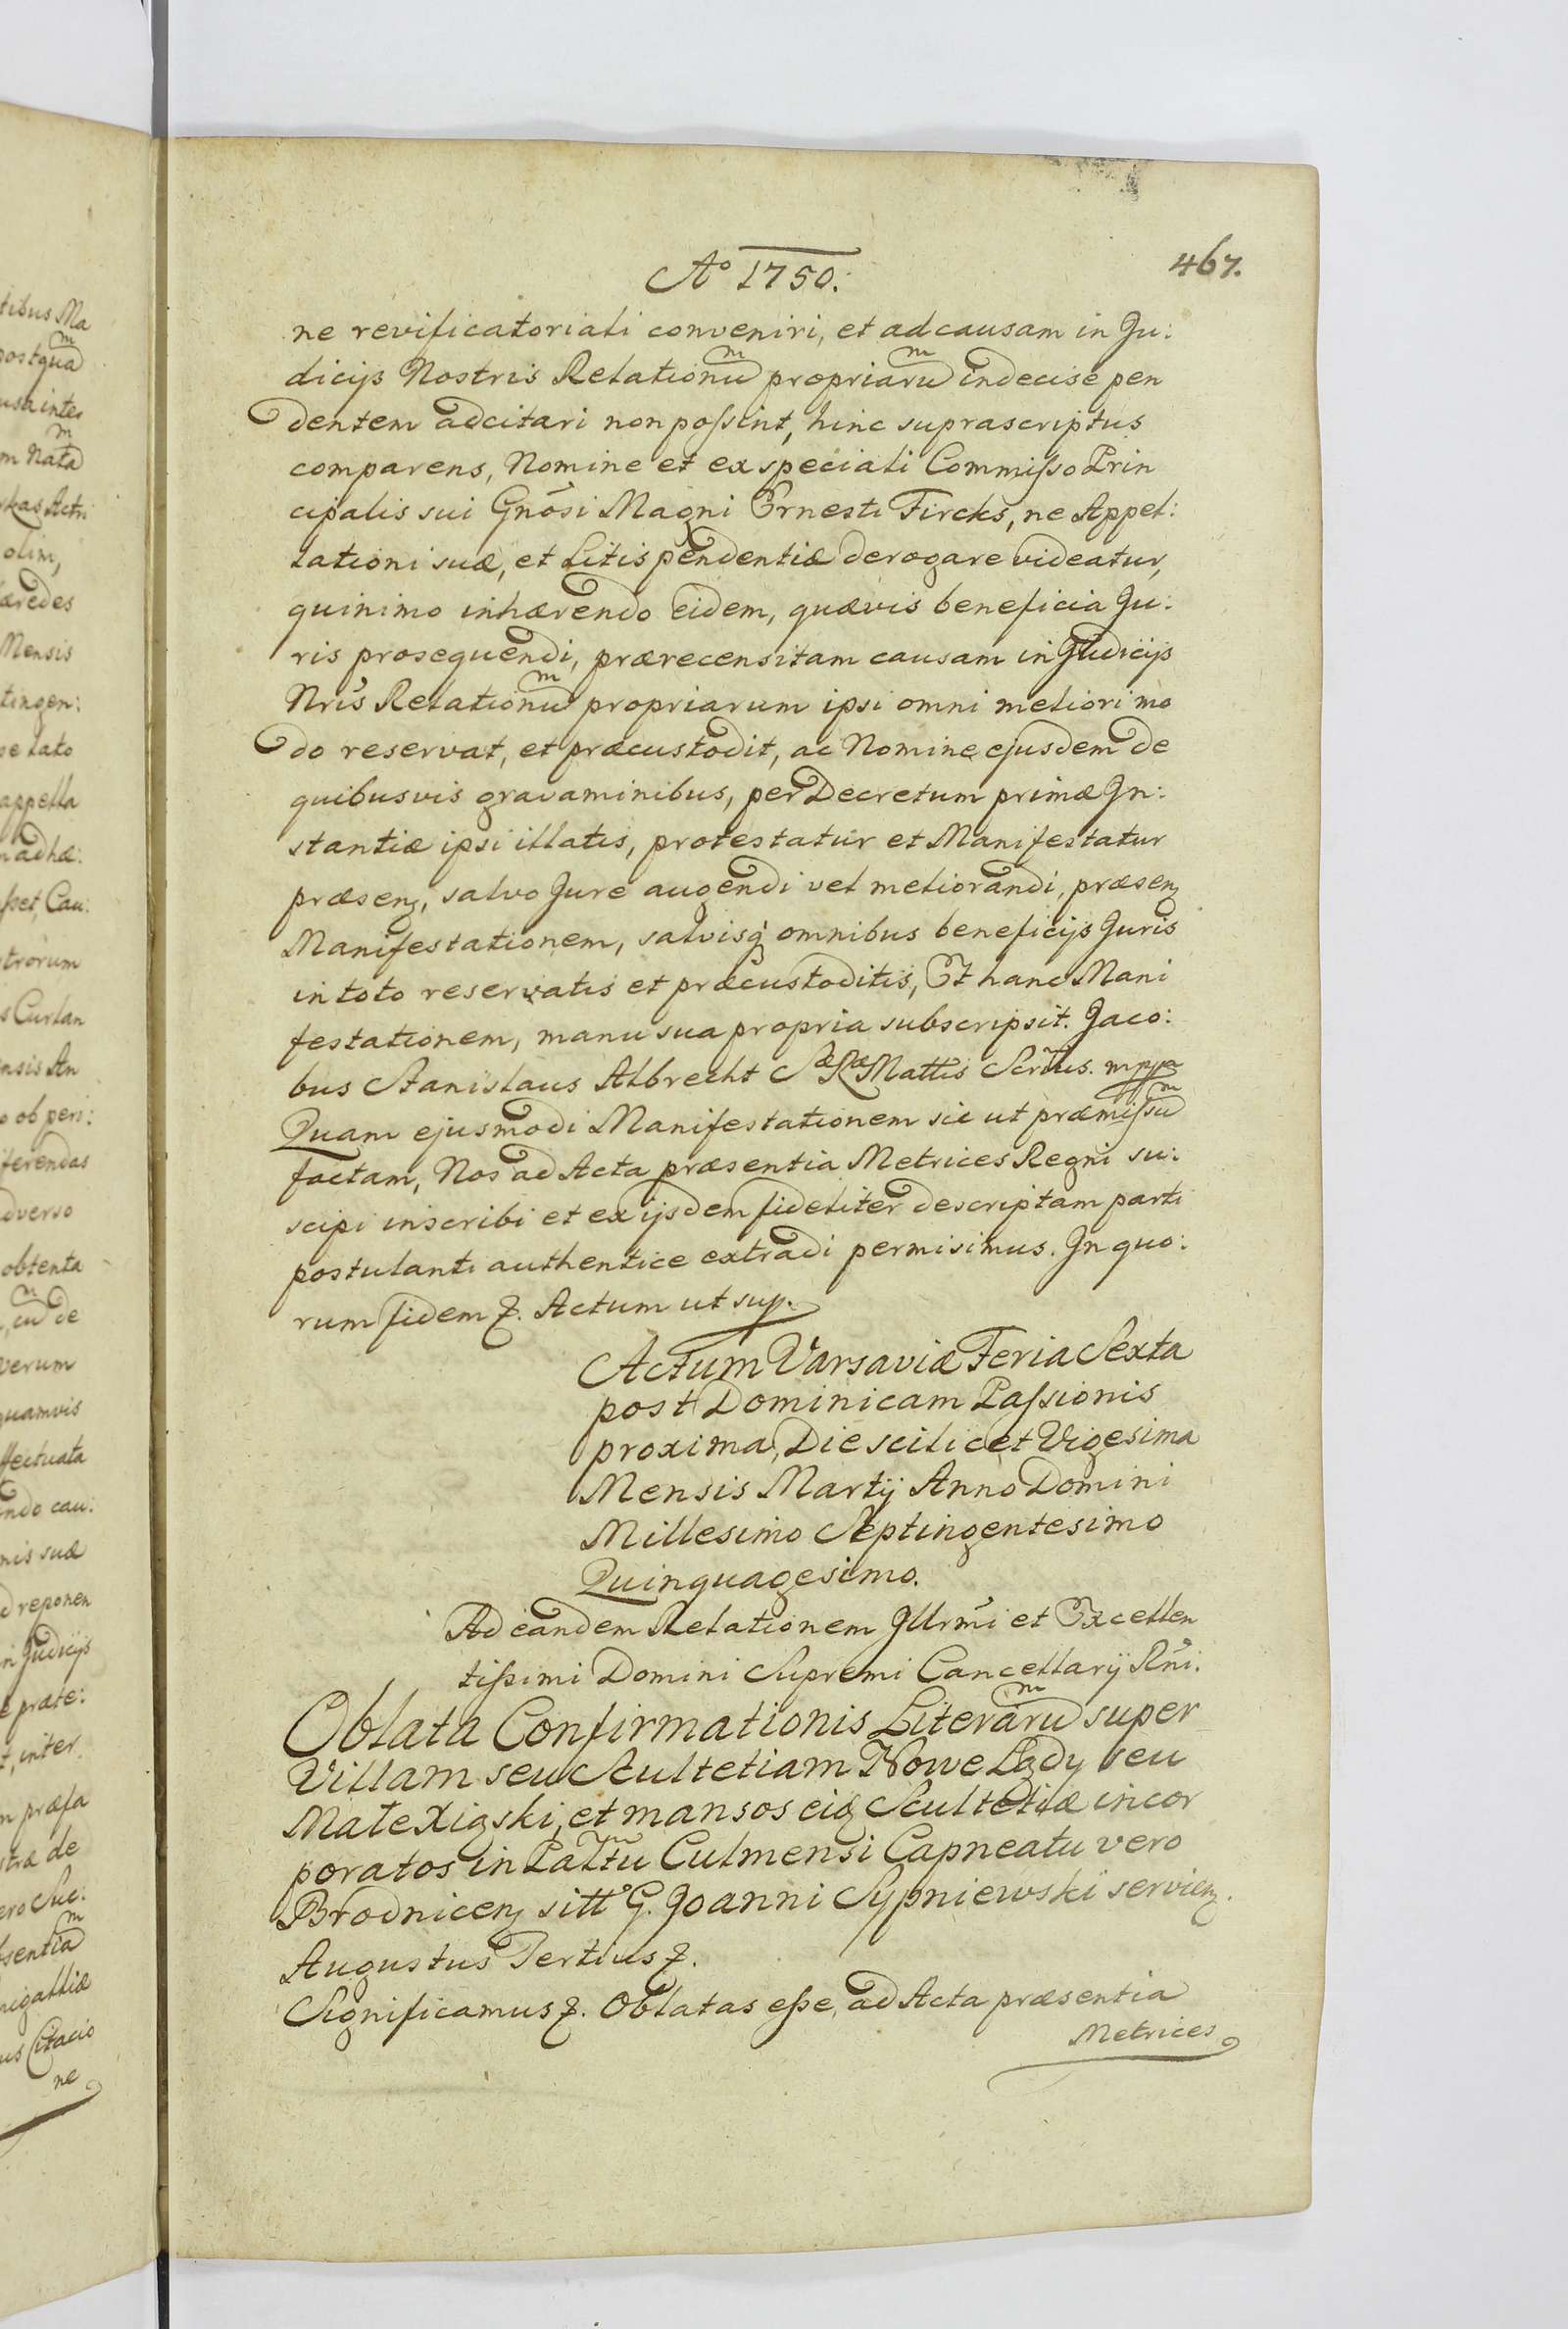 Aº 1750.
467.
ne revificatoriali conveniri, et ad causam in Ju:
dicijs Nostris Relationũ propriarũ indecise pen
dentem adcitari non poſsint, hinc suprascriptus
comparens, Nomine et ex speciali Commiſso Prin
cipalis sui Gnõsi Magni Ernesti Fircks, ne Appel:
lationi suæ, et Litis pendentiæ derogare videatur,
quinimo inhærendo eidem, quævis beneficia Ju:
ris prosequendi, prærecensitam causam in Judicijs
Nrĩs Relationũ propriarum ipsi omni meliori mo
do reservat, et præcustodit, ac Nomine ejusdem de
quibusvis gravaminibus, per Decretum primæ In:
stantiæ ipsi illatis, protestatur et Manifestatur
præsenȝ, salvo Jure augendi vel meliorandi, præsenȝ
Manifestationem, salvisq̃ omnibus beneficijs Juris
in toto reservatis et præcustoditis, Et hanc Mani
festationem, manu sua propria subscripsit. Jaco:
bus Stanislaus Albrecht Sæ Ræ Mattis Scrĩus. mppa
Quam ejusmodi Manifestationem sic ut præmiſsũ
factam, Nos ad Acta præsentia Metrices Regni su:
scipi inscribi et ex ijsdem fideliter descriptam parti
postulanti authentice extradi permisimus. In quo:
rum fidem ꝛ. Actum ut sup.
Actum Varsaviæ Feria Sexta
post Dominicam Paſsionis
proxima, Die scilicet Vigesima
Mensis Martij Anno Domini
Millesimo Septingentesimo
Quinquagesimo.
Ad eandem Relationem Jllrmĩ et Excellen
tiſsimi Domini Supremi Cancellarij Rñi.
Oblata Confirmationis Literarũ super
Villam seu Scultetiam Nowe Lądy seu
Małe Xiąski, et mansos eiȝ Scultetiæ incor
poratos in Palttũ Culmensi Capneatu vero
Brodnicenȝ sittº G. Joanni Sypniewski servienȝ.
Augustus Tertius ꝛ.
Significamus ꝛ. Oblatas eſse, ad Acta præsentia
Metrices